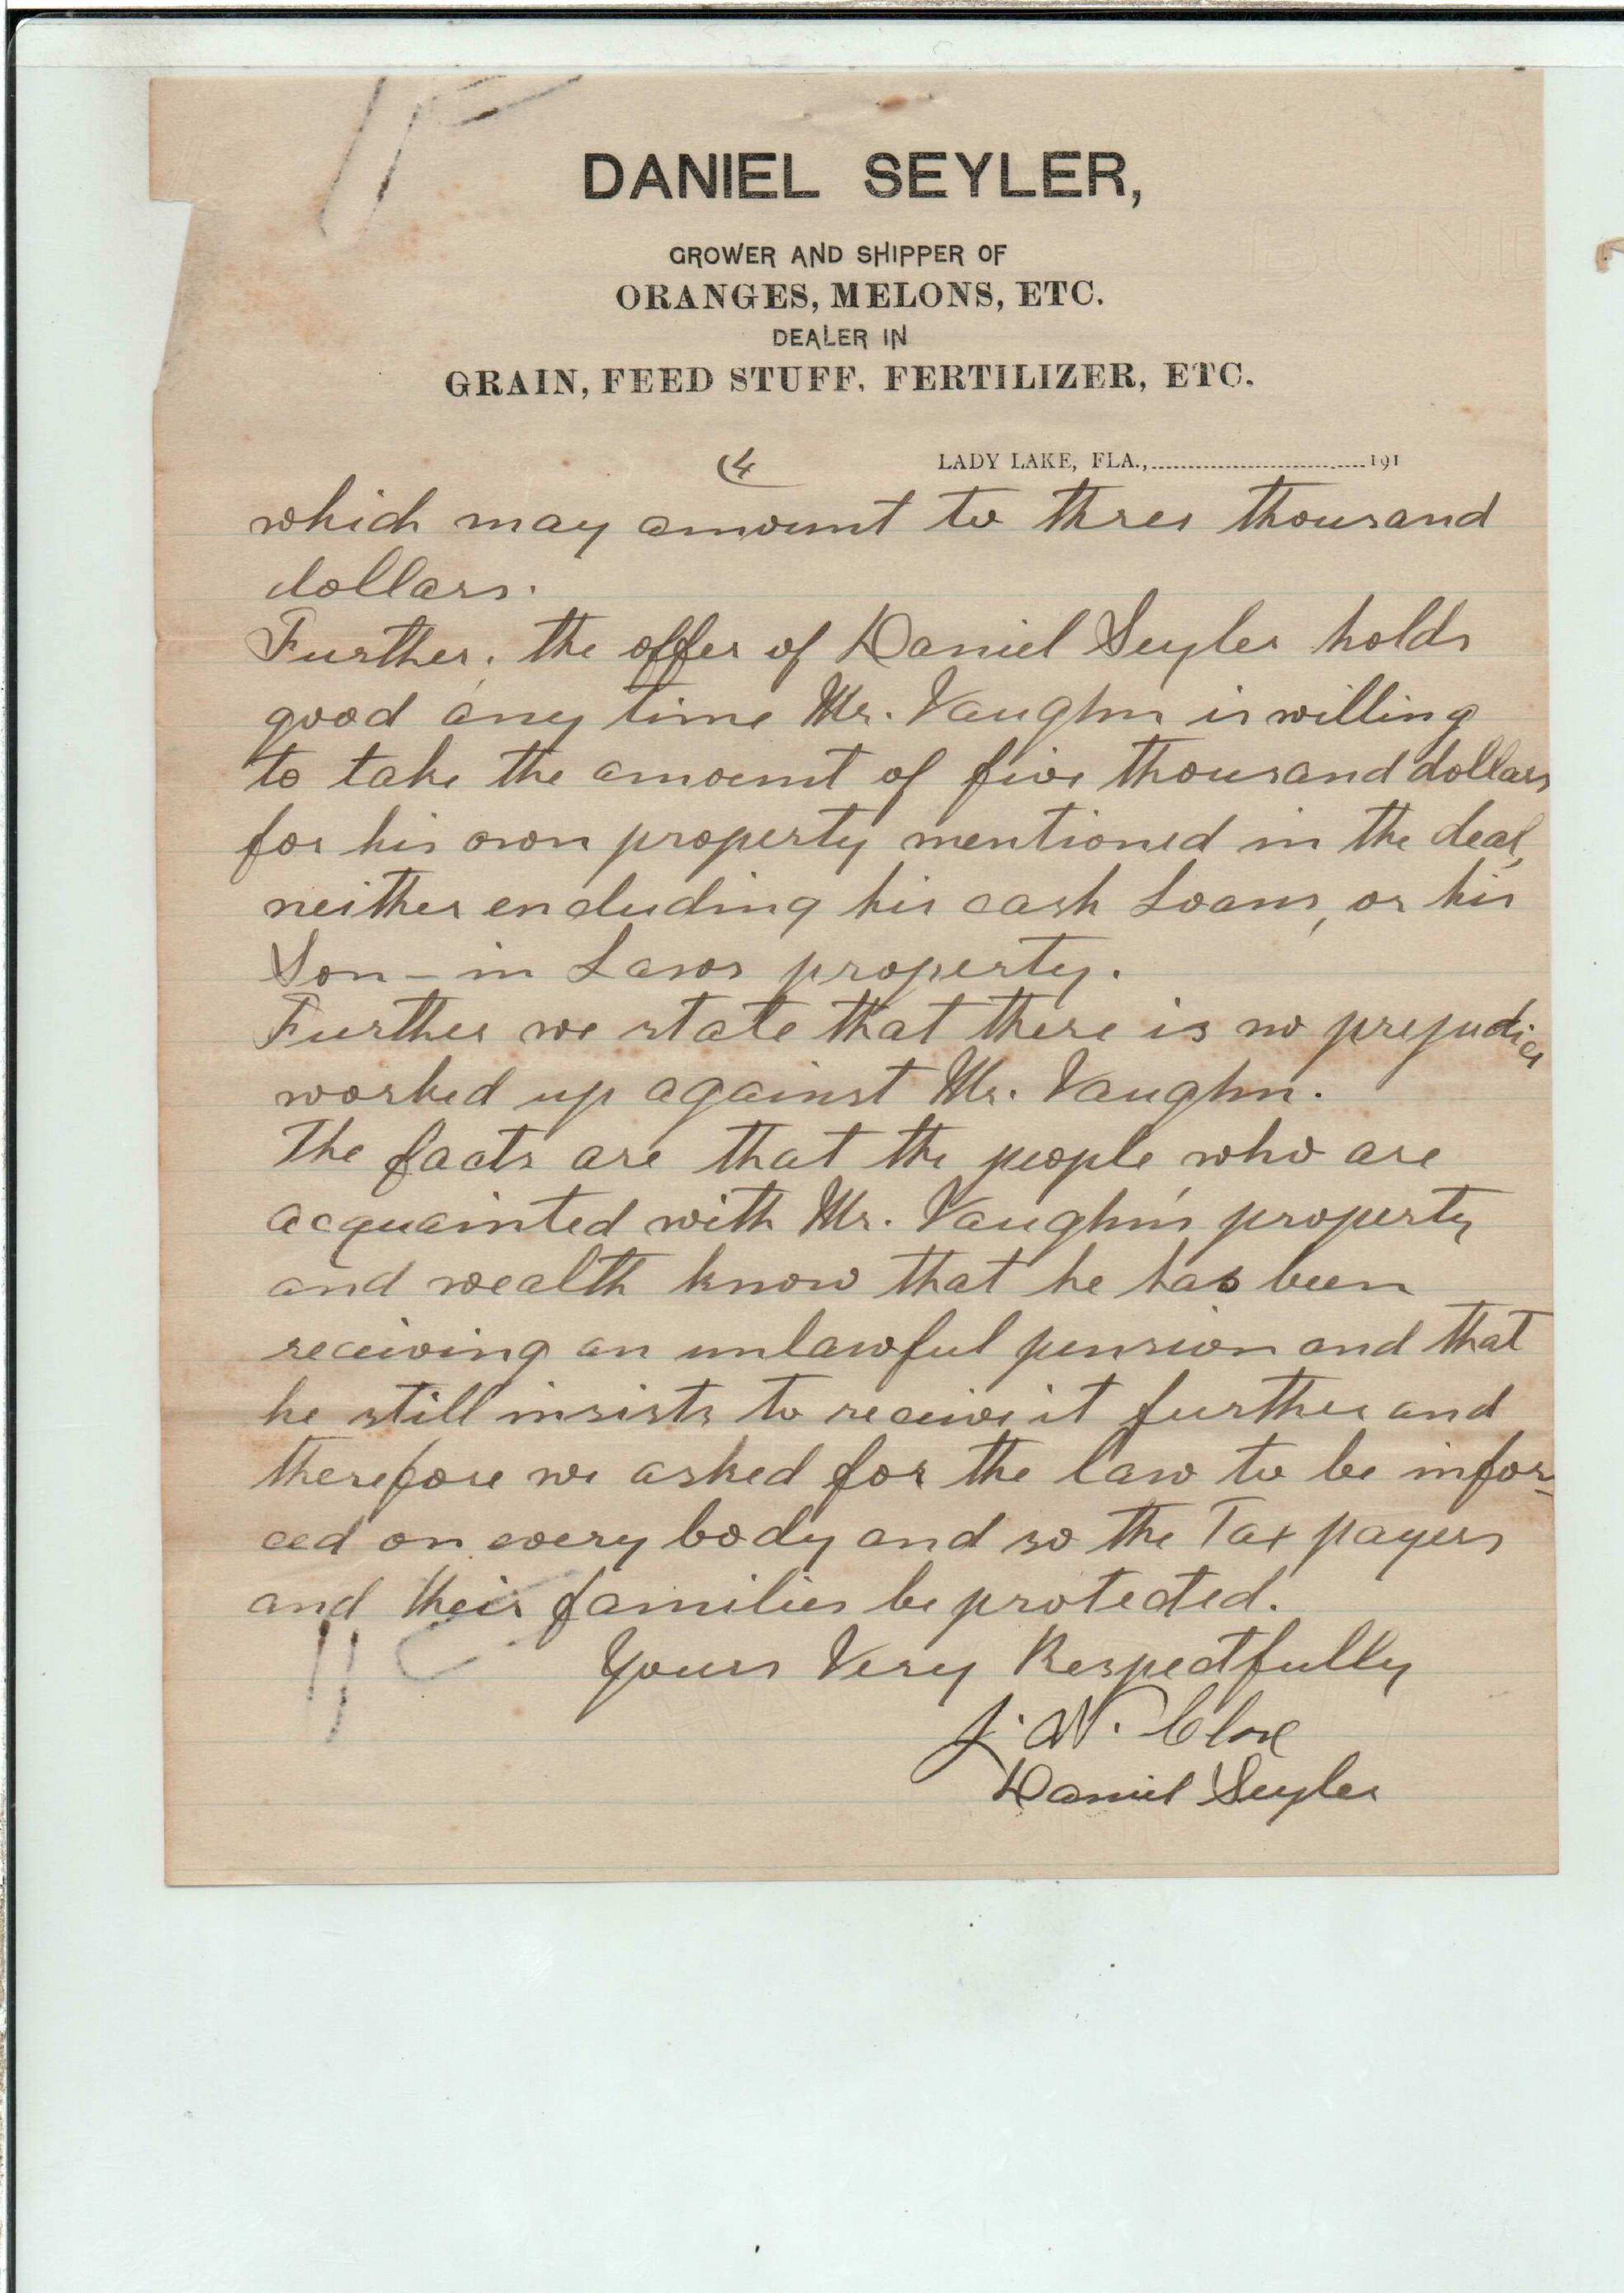 DANIEL SEYLER,
GROWER AND SHIPPER OF
ORANGES, MELONS, ETC.
DEALER IN
GRAIN, FEED STUFF, FERTILIZER, ETC.
(4
LADY LAKE, FLA.,..............................191
which may amount to three thousand
dollars.
Further, the offer of Daniel Seyler holds
good any time Mr. Vaughn is willing
to take the amount of five thousand dollars
for his own property mentioned in the deal,
neither encluding his cash Loans, or his
Son-in Laws property.
Further we state that there is no prejudice
worked up against Mr. Vaughn.
The facts are that the people who are
acquainted with Mr. Vaughn's property
and wealth know that he has been
receiving an unlawful pension and that
he still insists to receive it further and
therefore we asked for the law to be infor-
ced on every body and so the Tax payers
and their families be protected.
Yours Very Respectfully
J. W. Close
Daniel Seyler